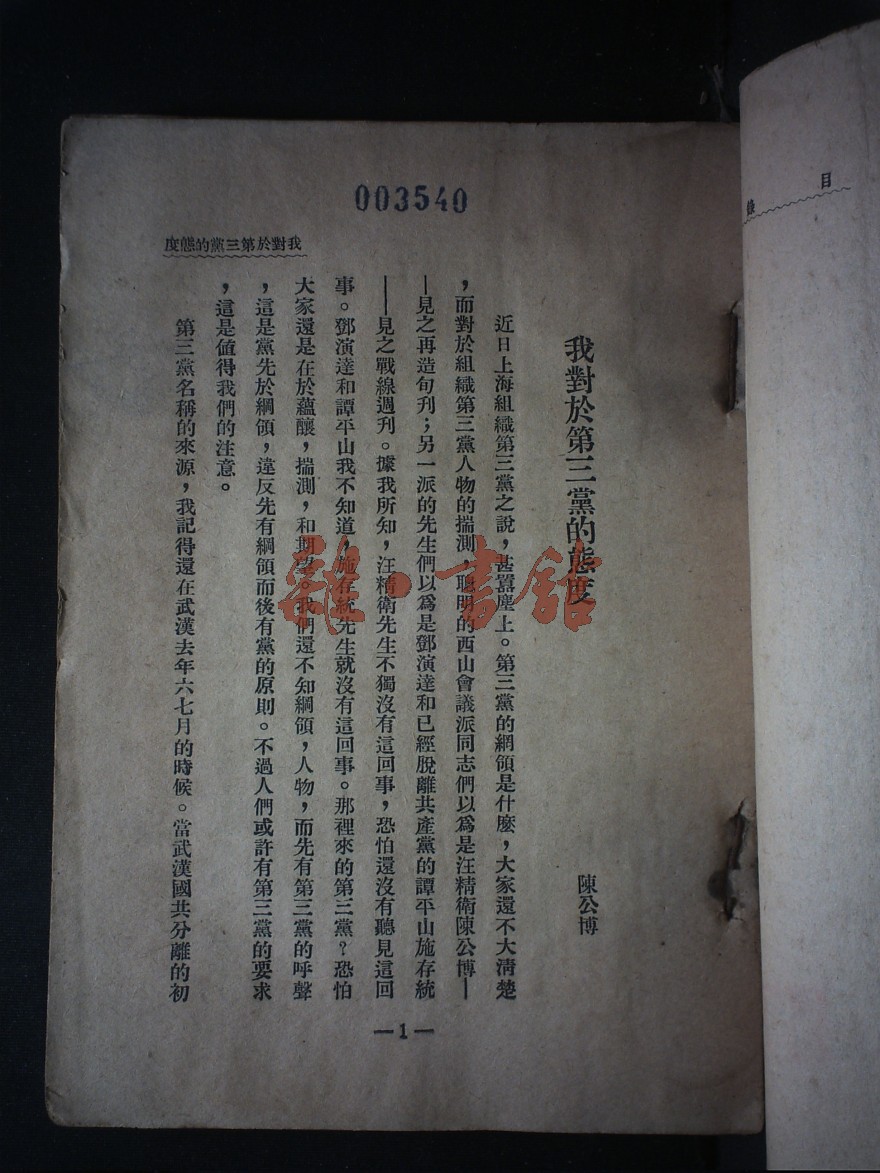 003540
我對於第三黨的態度
我對於第三黨的態度
陳公博
近日上海組織第三黨之說，甚囂塵上。第三黨的網領是什麼，大家還不大淸楚
，而對於組織第三黨人物的揣測，聰明的西山會議派同志們以爲是汪精衛陳公博—
—見之再造旬刋；另一派的先生們以爲是鄧演達和已經脫離共產黨的譚平山施存統
——見之戰線週刋。據我所知，汪精衛先生不獨沒有這回事，恐怕還沒有聽見這回
事。鄧演達和譚平山我不知道，施存統先生就沒有這回事。那裡來的第三黨？恐怕
大家還是在於蘊釀，揣測，和期望。我們還不知綱領，人物，而先有第三黨的呼聲
，這是黨先於綱領，違反先有綱領而後有黨的原則。不過人們或許有第三黨的要求
，這是値得我們的注意。
第三黨名稱的來源，我記得還在武漢去年六七月的時候。當武漢國共分離的初
—1—
目錄
雜·書館